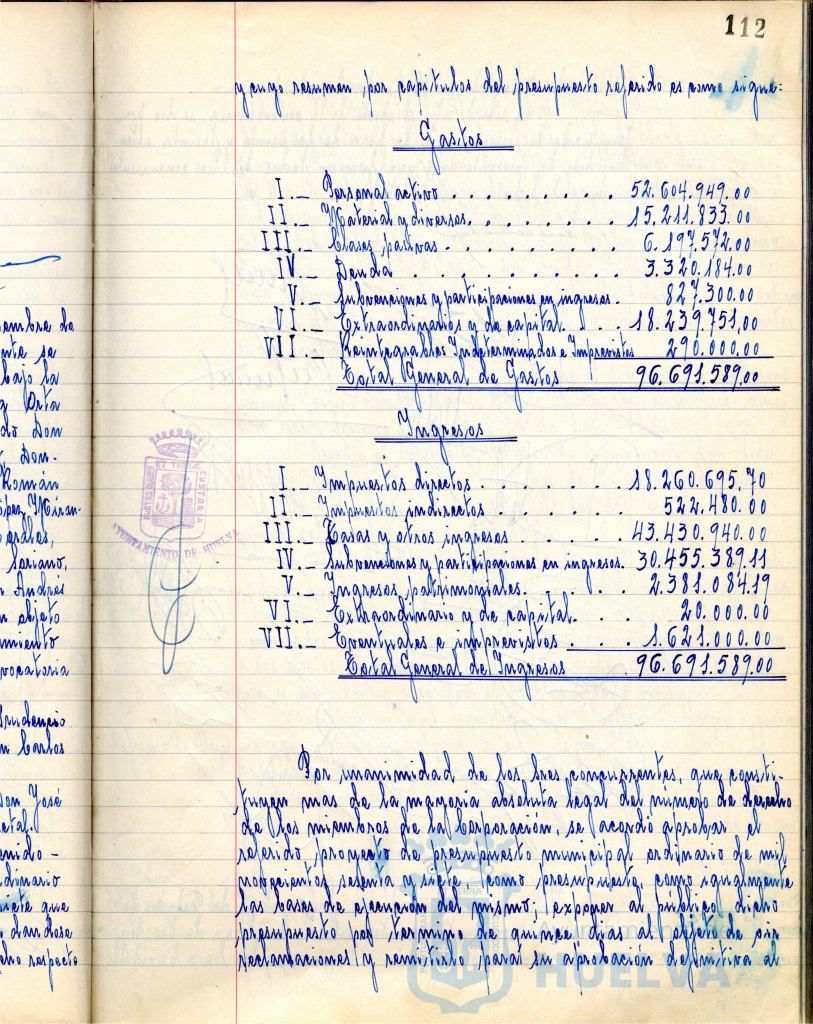 112
y cuyo resumen por capitulos del presupuesto referido es como sigue:
Gastos
I._ Personal activo . . . . . . . . . 52.604.949.00
II._ Material y diversos. . . . . . . . 15.211.833.00
III._ Clases pasivas . . . . . . . . . 6.197.572.00
IV._ Deuda . . . . . . . . . . 3.320.184.00
V._ Subvenciones y participaciones en ingresos. 827.300.00
VI._ Extraordinarios y de capital. . . . 18.239.751,00
VII._ Reintegrables Indeterminados e Imprevistos 290.000.00
Total General de Gastos 96.691.589.00
Ingresos
I._ Impuestos directos . . . . . . . 18.260.695,70
II._ Impuestos indirectos . . . . . . 522.480.00
III._ Tasas y otros ingresos . . . . . 43.430.940.00
IV._ Subvenciones y participaciones en ingresos. 30.455.389.11
V._ Ingresos patrimoniales. . . . . 2.381.084.19
VI._ Extraordinario y de capital. . . . 20.000.00
VII._ Eventuales e imprevistos . . . . 1.621.000.00
Total General de Ingresos 96.691.589.00
Por unanimidad de los Sres concurrentes, que consti-
tuyen mas de la mayoria absoluta legal del número de derecho
de los miembros de la Corporación, se acordó aprobar el
referido proyecto de presupuesto municipal ordinario de mil
novecientos setenta y siete como presupuesto, como igualmente
las bases de ejecución del mismo; exponer al público dicho
presupuesto por termino de quince dias al objeto de oir
reclamaciones y remitirlo para su aprobación definitiva al
embre de
nte se
bajo la
Orta
do Don
Don.
Román
López Miran-
Soriano,
Andrés
objeto
miento
vocatoria
Prudencio
n Carlos
Don José
etal.
enido-
dinario
siete que
dandose
cho respecto
CUSTODIA
AYUNTAMIENTO DE HUELVA
HUELVA